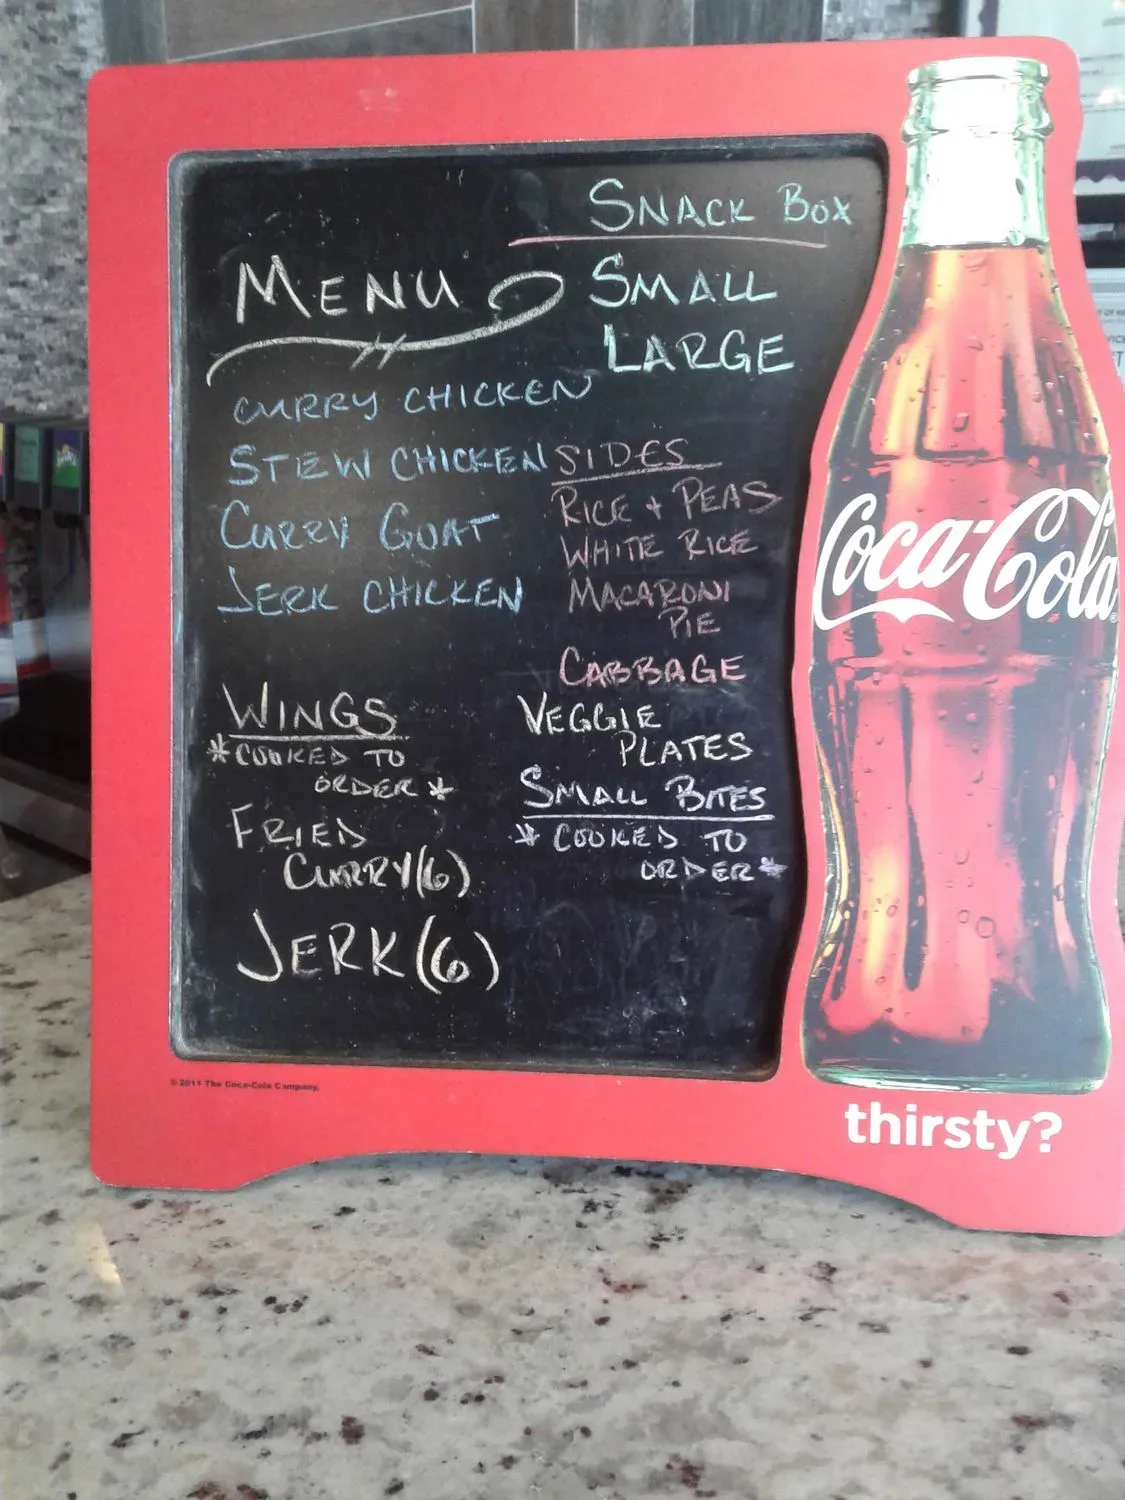 SNACK BOX
SMALL
LARGE
MENU
CURRY CHICKEN
STEW CHICKEN
CURRY GOAT
JERK CHICKEN
SIDES
RICE + PEAS
WHITE RICE
MACARONI
PIE
CABBAGE
WINGS
*COOKED TO
ORDER*
FRIED
CURRY(6)
JERK(6)
VEGGIE
PLATES
SMALL BITES
* COOKED TO
ORDER*
Coca-Cola
thirsty?
© 2011 The Coca-Cola Company.